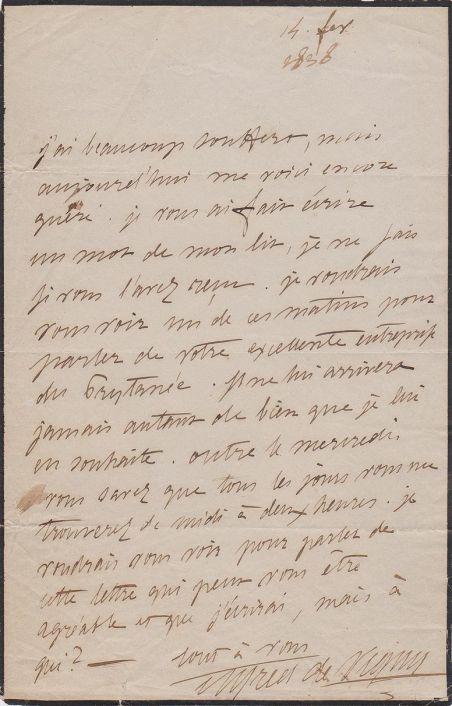 14 fev.
1838
j'ai beaucoup souffert, mais
aujourd'hui me voici encore
guéri. je vous ai fait écrire
un mot de mon lit, je ne sais
si vous l'avez reçu. je voudrais
vous voir un de ces matins pour
parler de votre excellente entreprise
du Prytanée. Il ne lui arrivera
jamais autant de bien que je lui
en souhaite. outre le mercredi
vous savez que tous les jours vous me
trouverez de midi à deux heures. je
voudrais vous voir pour parler de
cette lettre qui peut vous être
agréable et que j'écrirai, mais à
qui? — tout à vous
Alfred de Vigny